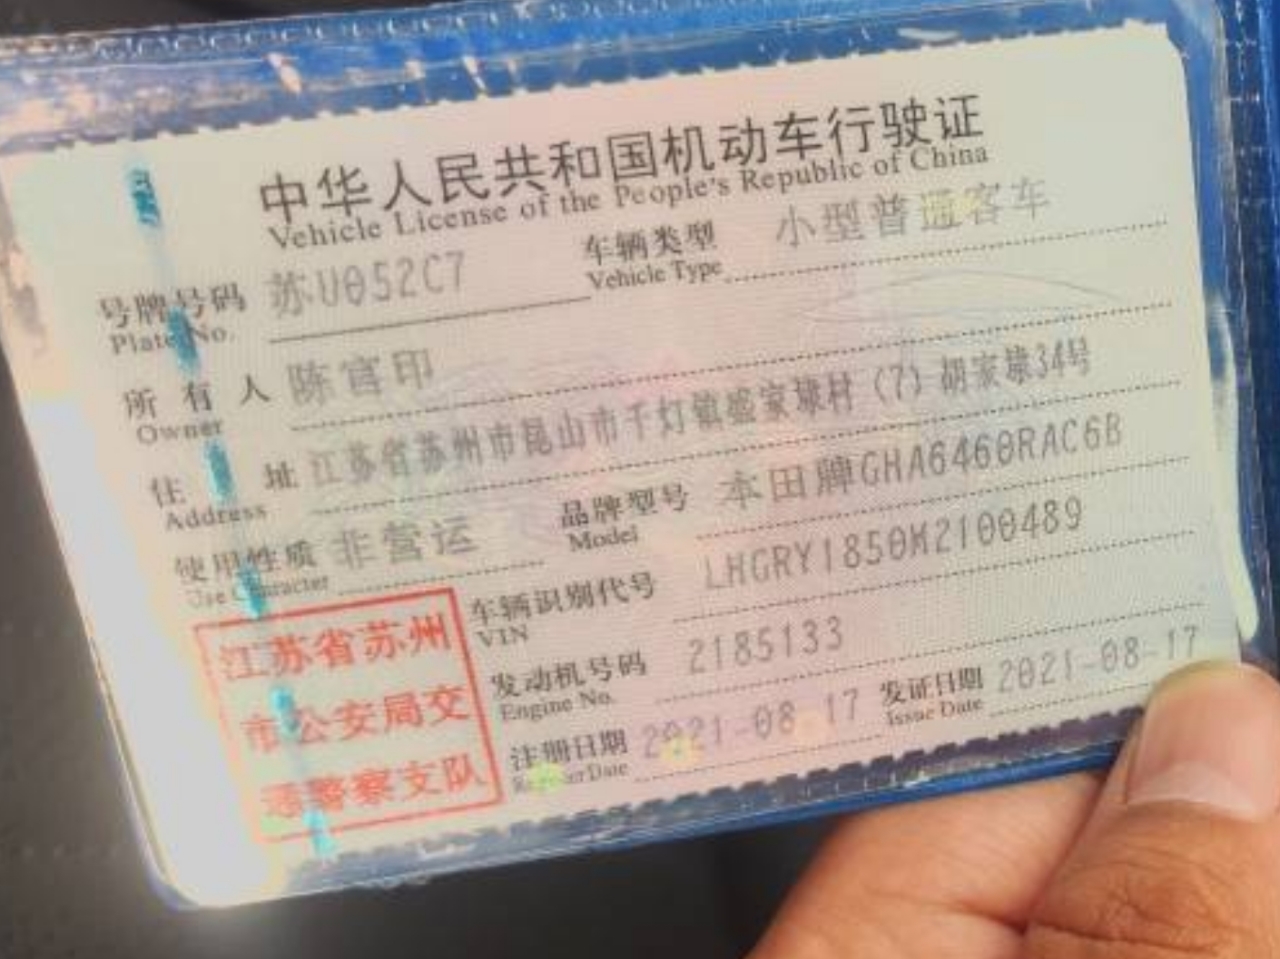 中华人民共和国机动车行驶证
Vehicle License of the People's Republic of China
号牌号码 苏U052C7 车辆类型 小型普通客车
Plate No. Vehicle Type
所有人 陈官印
Owner
住址 江苏省苏州市昆山市千灯镇盛家埭村（7）胡家埭34号
Address
使用性质 非营运 品牌型号 本田牌GHA6460RAC6B
Use Character Model
车辆识别代号 LHGRY1850M2100489
VIN
发动机号码 2185133
Engine No.
注册日期 2021-08-17 发证日期 2021-08-17
Register Date Issue Date
江苏省苏州
市公安局交
通警察支队